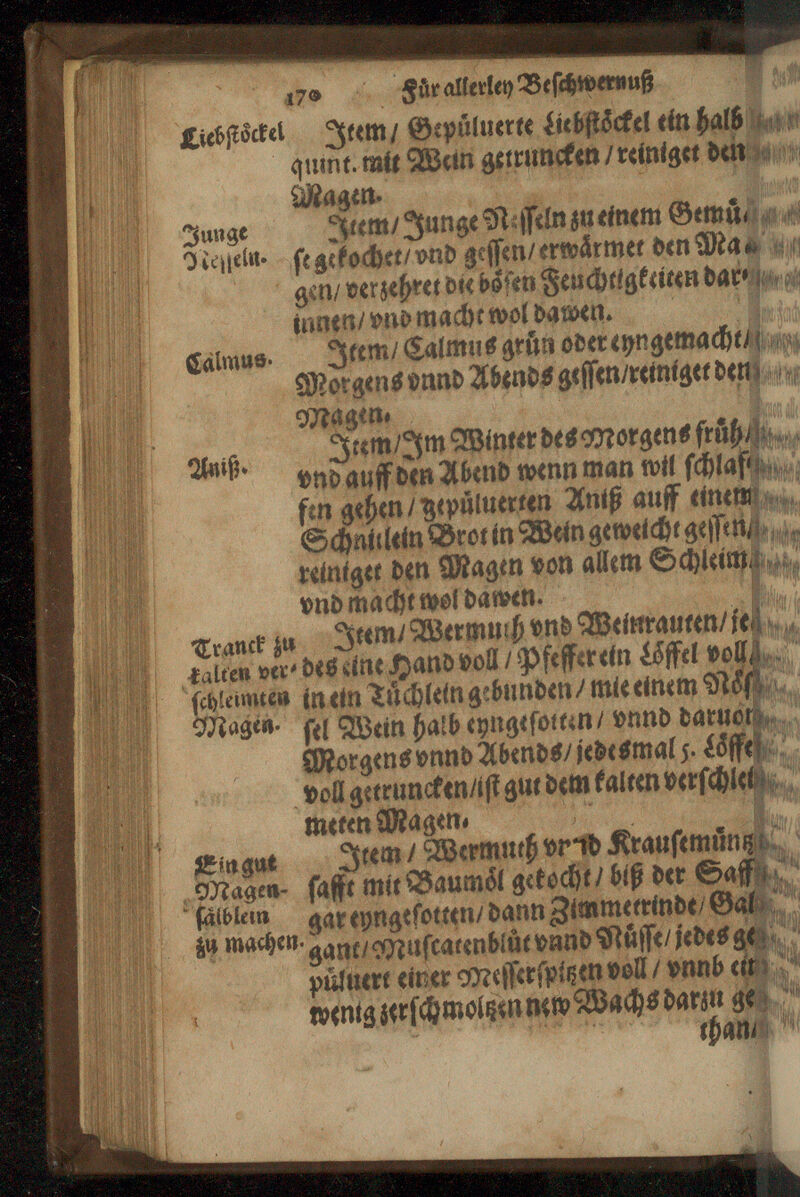 170 Für allerley Beſchwernuß
Liebſtöckel Item / Gepuͤluerte Liebſtoͤckel ein halb
quint. mit Wein getruncken / reiniget den
Magen.
Junge Item / Junge Neſſeln zu einem Gemuͤ⸗
Neſſeln. ſe gekochet / vnd geſſen / erwaͤrmet den Ma⸗
gen / verzehret die boͤſen Feuchtigkeiten dar⸗
innen / vnd macht wol dawen.
Calmus. Item / Calmus gruͤn oder eyngemacht /
Morgens vnnd Abends geſſen / reiniget den
Magen.
Item / Im Winter des Morgens fruͤh /
Aniß. vnd auff den Abend wenn man wil ſchlaf⸗
fen gehen / gepuͤluerten Aniß auff einem
Schnitlein Brot in Wein geweicht geſſen /
reiniget den Magen von allem Schleim
vnd macht wol dawen.
Tranck zu Item / Wermuth vnd Weinrauten / je⸗
kalten ver⸗ des eine Hand voll / Pfeffer ein Loͤffel voll
ſchleimten in ein Tuͤchlein gebunden / mie einem Noͤſ⸗
Magen. ſel Wein halb eyngeſotten / vnnd daruon
Morgens vnnd Abends / jedesmal 5. Loͤffel
voll getruncken / iſt gut dem kalten verſchlei⸗
meten Magen.
Ein gut Item / Wermuth vnd Krauſemuͤntz
Magen- ſafft mit Baumoͤl gekocht / biß der Saff
ſälblein gar eyngeſotten / dann Zimmetrinde / Gal
zu machen. gant / Muſcatenbluͤt vnnd Nuͤſſe / jedes ge
puͤluert einer Meſſerſpitzen voll / vnnb ein
wenig zerſchmoltzen new Wachs darzu ge
than /